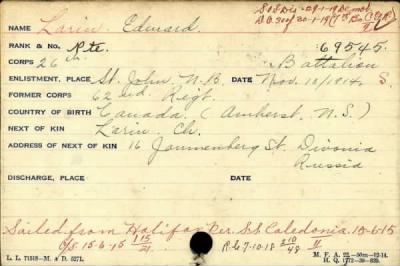 S.O.S. Dis. 29-1-19 Demob.
NAME Larin Edward D.O. 30 of 30-1-19
RANK & NO. Pte. 69545.
CORPS 26th Battalion
ENLISTMENT, PLACE St. John, N.B. DATE Nov. 10/1914. S.
FORMER CORPS 62nd Regt.
COUNTRY OF BIRTH Canada, (Amherst, N.S.)
NEXT OF KIN Larin, Ch.
ADDRESS OF NEXT OF KIN 16 St. Divonia
Russia
DISCHARGE, PLACE DATE
Sailed from Halifax Per. S.S. Caledonia 15-6-15
O/S. 15-6-15 115/21 R.C. 7-10-18 210/48 II
L. L. 71318—M. & D. 8271. M. F. A. 22.—50m—12-14.
H. Q. 1772—39—839.